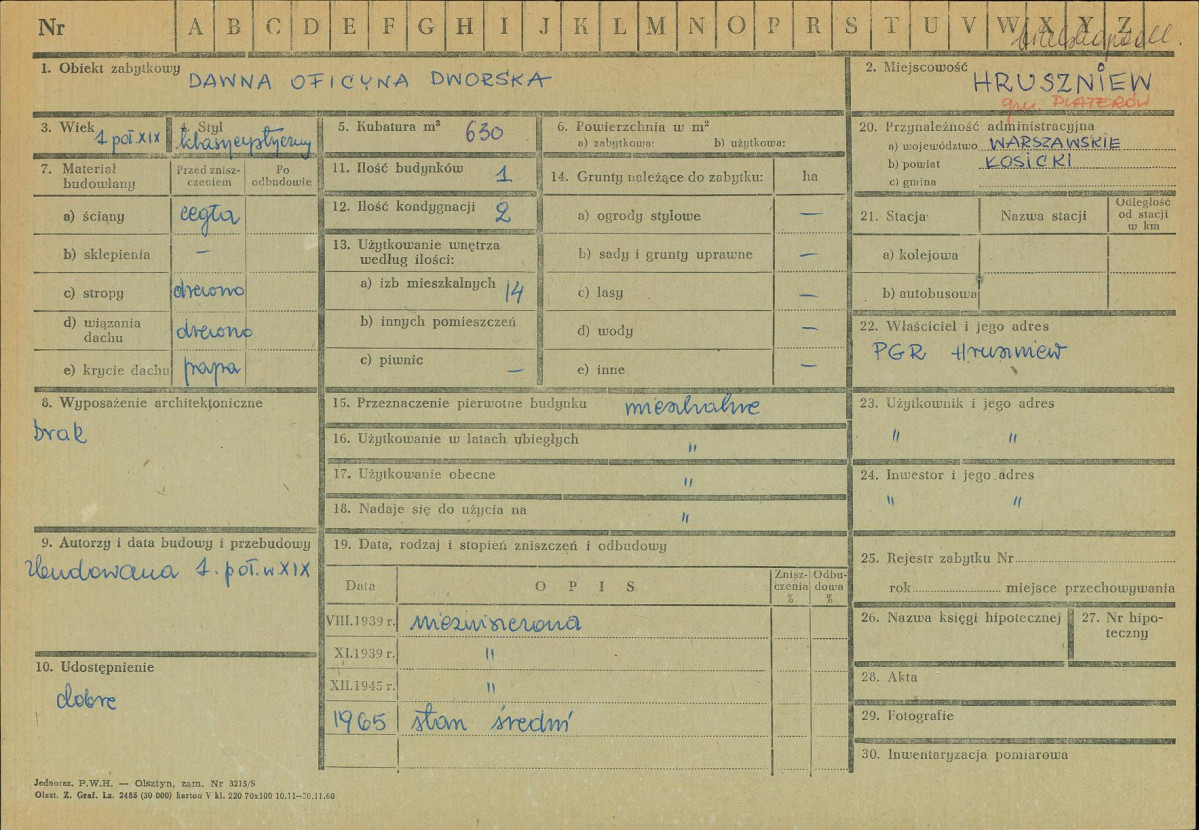 Nr A B C D E F G H I J K L M N O P R S T U V W X Y Z
1. Obiekt zabytkowy DAWNA OFICYNA DWORSKA
2. Miejscowość HRUSZNIEW
gm. PLATERÓW
3. Wiek 1 poł. XIX
4. Styl klasycystyczny
5. Kubatura m³ 630
6. Powierzchnia w m²
a) zabytkowa: b) użytkowa:
20. Przynależność administracyjna
a) województwo WARSZAWSKIE
b) powiat ŁOSICKI
c) gmina
7. Materiał budowlany
Przed znisz-
czeniem
Po
odbudowie
a) ściany cegła
b) sklepienia —
c) stropy drewno
d) wiązania
dachu drewno
e) krycie dachu papa
11. Ilość budynków 1
12. Ilość kondygnacji 2
13. Użytkowanie wnętrza
według ilości:
a) izb mieszkalnych 14
b) innych pomieszczeń
c) piwnic —
14. Grunty należące do zabytku: ha
a) ogrody stylowe —
b) sady i grunty uprawne —
c) lasy —
d) wody —
e) inne —
21. Stacja Nazwa stacji
Odległość
od stacji
w km
a) kolejowa
b) autobusowa
22. Właściciel i jego adres
PGR Hruszniew
8. Wyposażenie architektoniczne
brak
15. Przeznaczenie pierwotne budynku mieszkalne
16. Użytkowanie w latach ubiegłych "
17. Użytkowanie obecne "
18. Nadaje się do użycia na "
23. Użytkownik i jego adres
" "
24. Inwestor i jego adres
" "
9. Autorzy i data budowy i przebudowy
zbudowana 1. poł. w XIX
10. Udostępnienie
dobre
19. Data, rodzaj i stopień zniszczeń i odbudowy
Data O P I S
Znisz-
czenia
%
Odbu-
dowa
%
VIII.1939 r. niezniszczona
XI.1939 r. "
XII.1945 r. "
1965 stan średni
25. Rejestr zabytku Nr
rok miejsce przechowywania
26. Nazwa księgi hipotecznej
27. Nr hipo-
teczny
28. Akta
29. Fotografie
30. Inwentaryzacja pomiarowa
Jednoraz. P.W.H. — Olsztyn, zam. Nr 3215/S
Olszt. Z. Graf. Lz. 2485 (30 000) karton V kl. 220 70x100 10.11—30.11.60